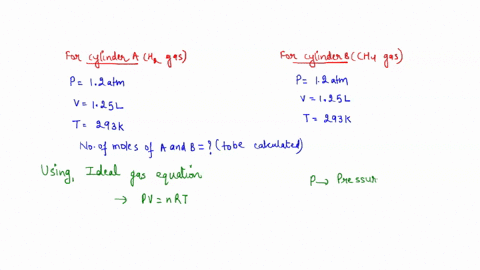 For cylinder A (H₂ gas)
P = 1.2 atm
V = 1.25 L
T = 293 K
For cylinder B (CH4 gas)
P = 1.2 atm
V = 1.25 L
T = 293 K
No. of moles of A and B = ? (to be calculated)
Using, Ideal gas equation
→ PV = nRT
P → Pressur